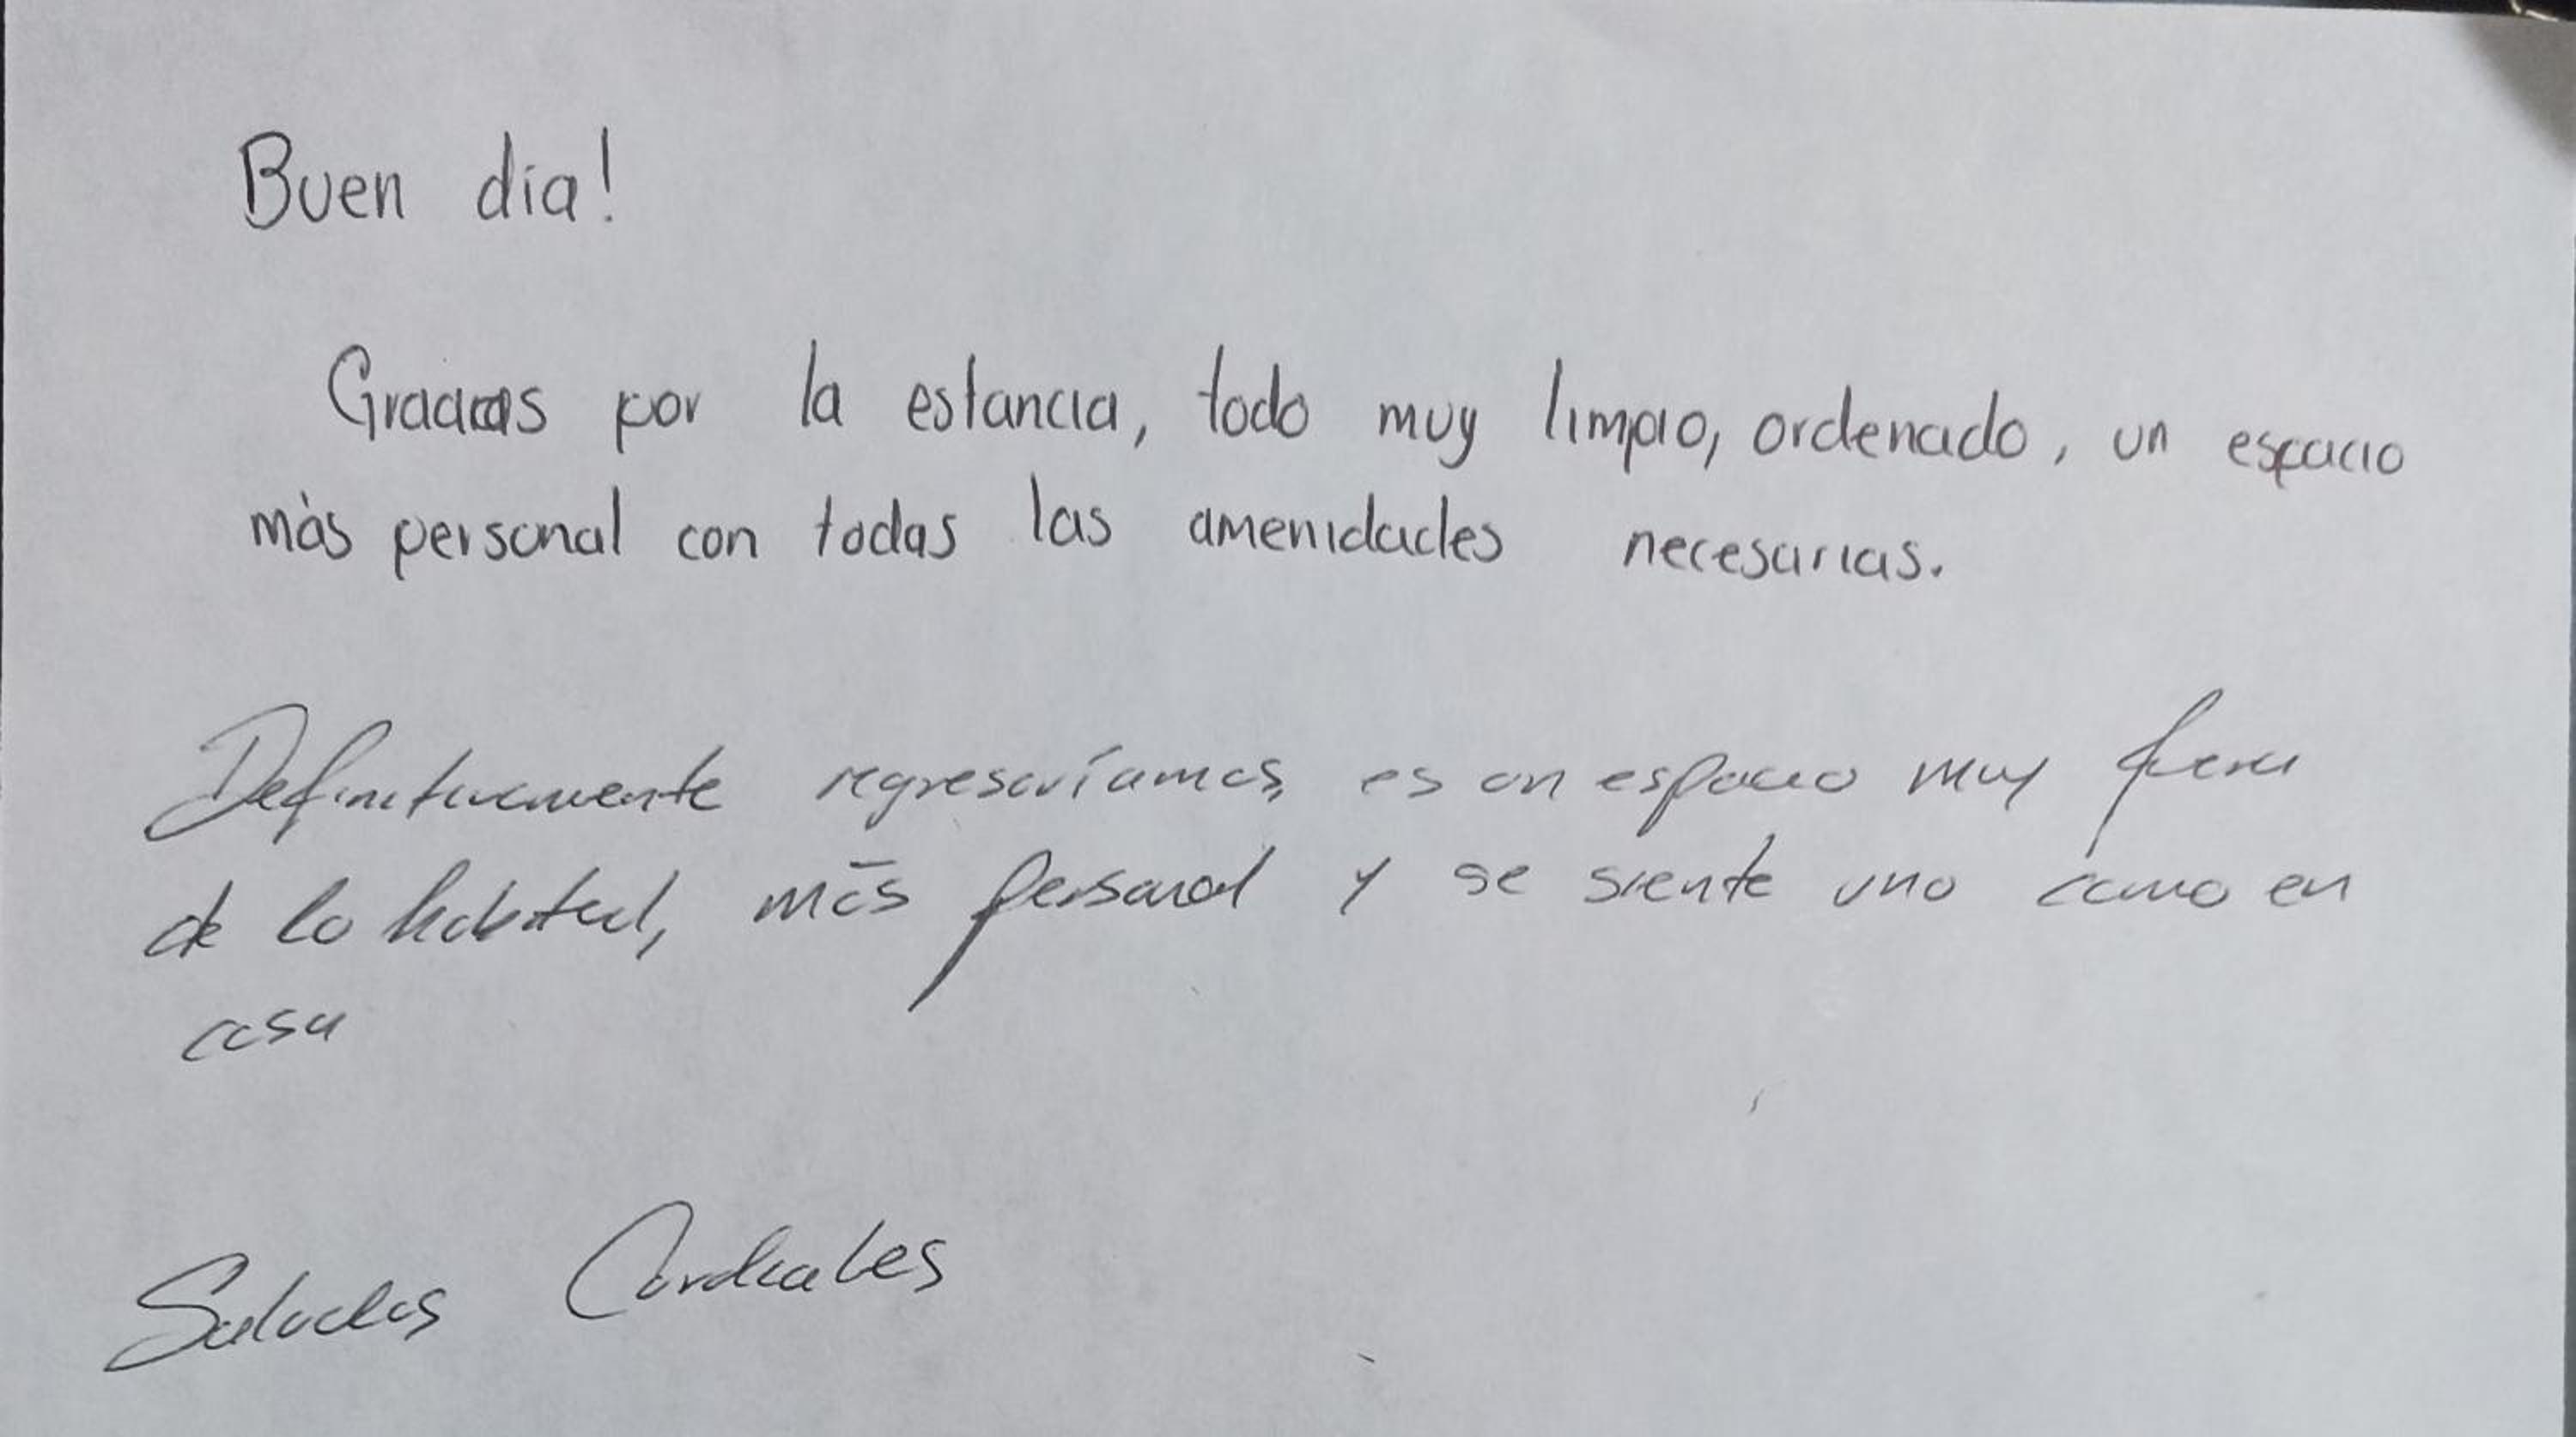 Buen día!
Gracias por la estancia, todo muy limpio, ordenado, un espacio
más personal con todas las amenidades necesarias.
Definitivamente regresaríamos, es un espacio muy fuera
de lo habitual, más personal y se siente uno como en
casa
Saludos Cordiales